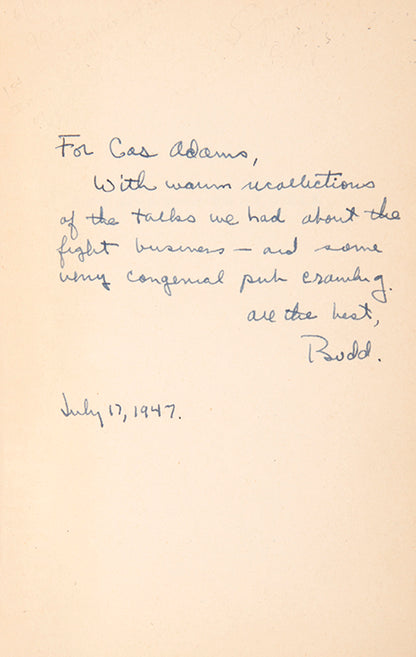 For Cas Adams,
With warm recollections
of the talks we had about the
fight business – and some
very congenial pub crawling.
All the best,
Budd.
July 17, 1947.